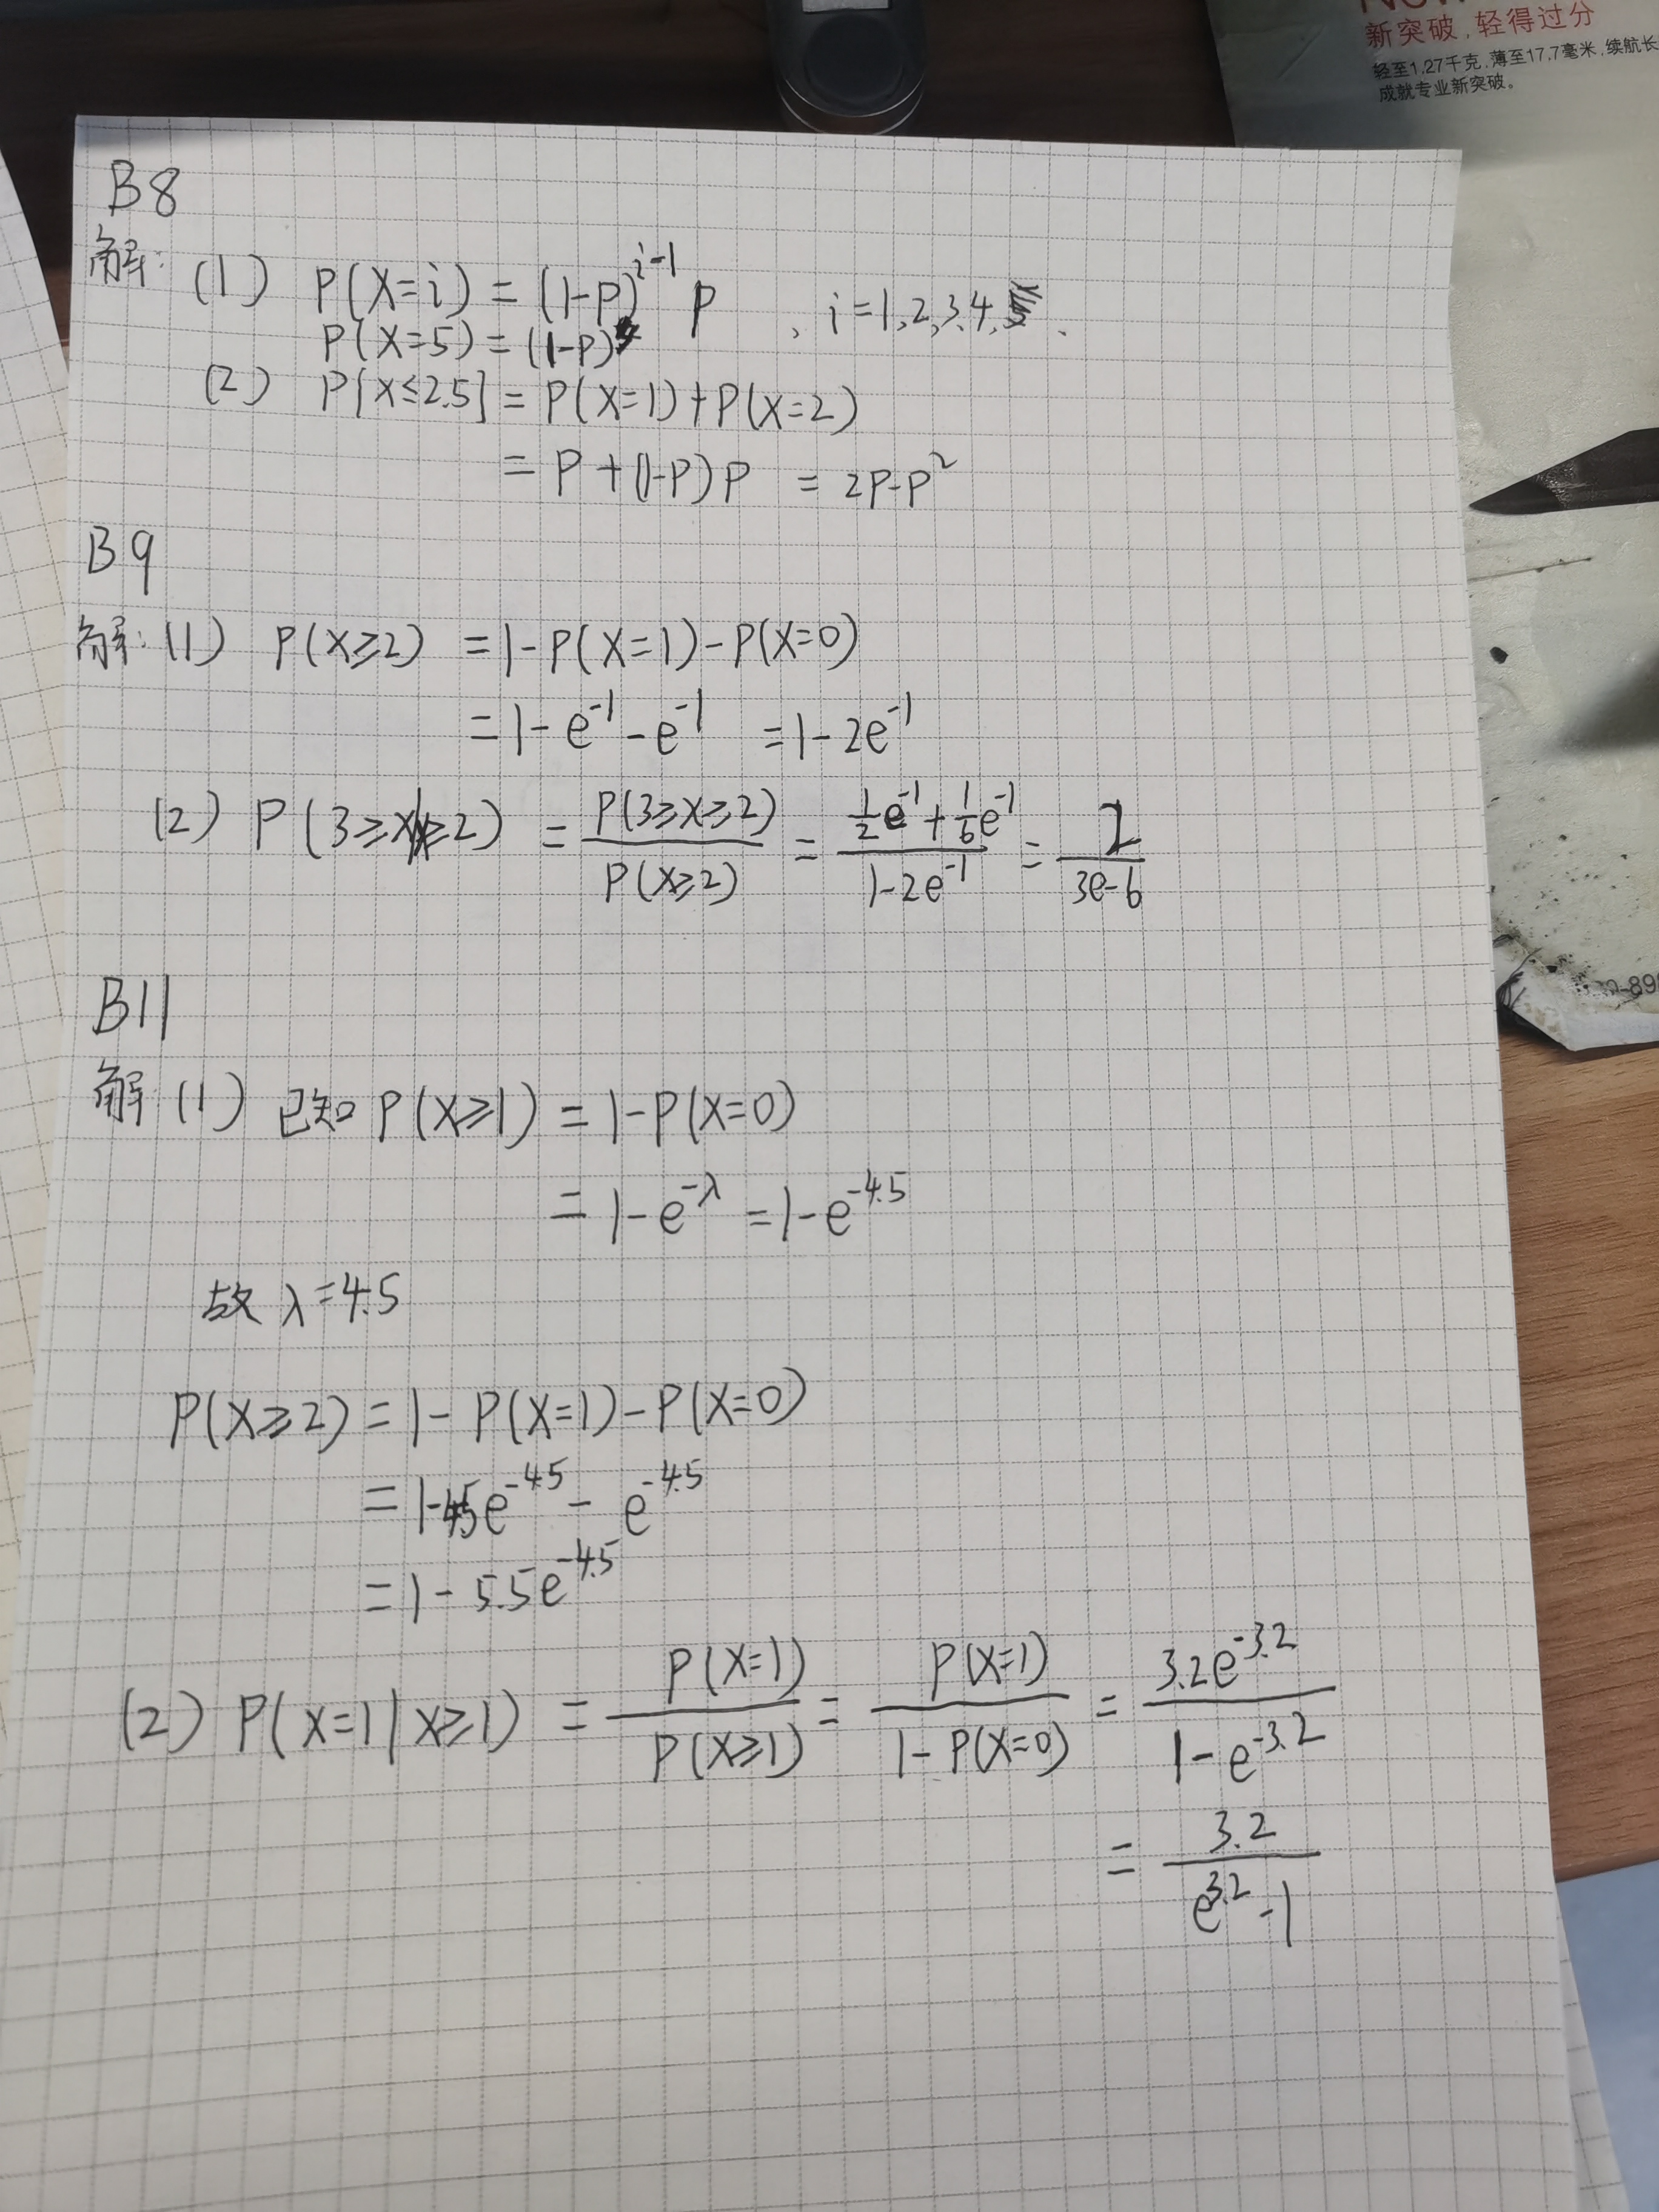 新突破,轻得过分
轻至1.27千克,薄至17.7毫米,续航长
成就专业新突破。
B8
解: (1) P(X=i) = (1-p)^{i-1} p , i=1,2,3,4.
P(X=5) = (1-p)^4
(2) P[X≤2.5] = P(X=1)+P(X=2)
= P+(1-P)P = 2P-P^2
B9
解: (1) P(X≥2) = 1-P(X=1)-P(X=0)
= 1-e^{-1}-e^{-1} = 1-2e^{-1}
(2) P(3≥X|X≥2) = \frac{P(3≥X≥2)}{P(X≥2)} = \frac{\frac{1}{2}e^{-1}+\frac{1}{6}e^{-1}}{1-2e^{-1}} = \frac{2}{3e-6}
B11
解 (1) 已知 P(X≥1) = 1-P(X=0)
= 1-e^{-λ} = 1-e^{-4.5}
故 λ=4.5
P(X≥2) = 1-P(X=1)-P(X=0)
= 1-4.5e^{-4.5} - e^{-4.5}
= 1-5.5e^{-4.5}
(2) P(X=1|X≥1) = \frac{P(X=1)}{P(X≥1)} = \frac{P(X=1)}{1-P(X=0)} = \frac{3.2e^{-3.2}}{1-e^{-3.2}}
= \frac{3.2}{e^{3.2}-1}